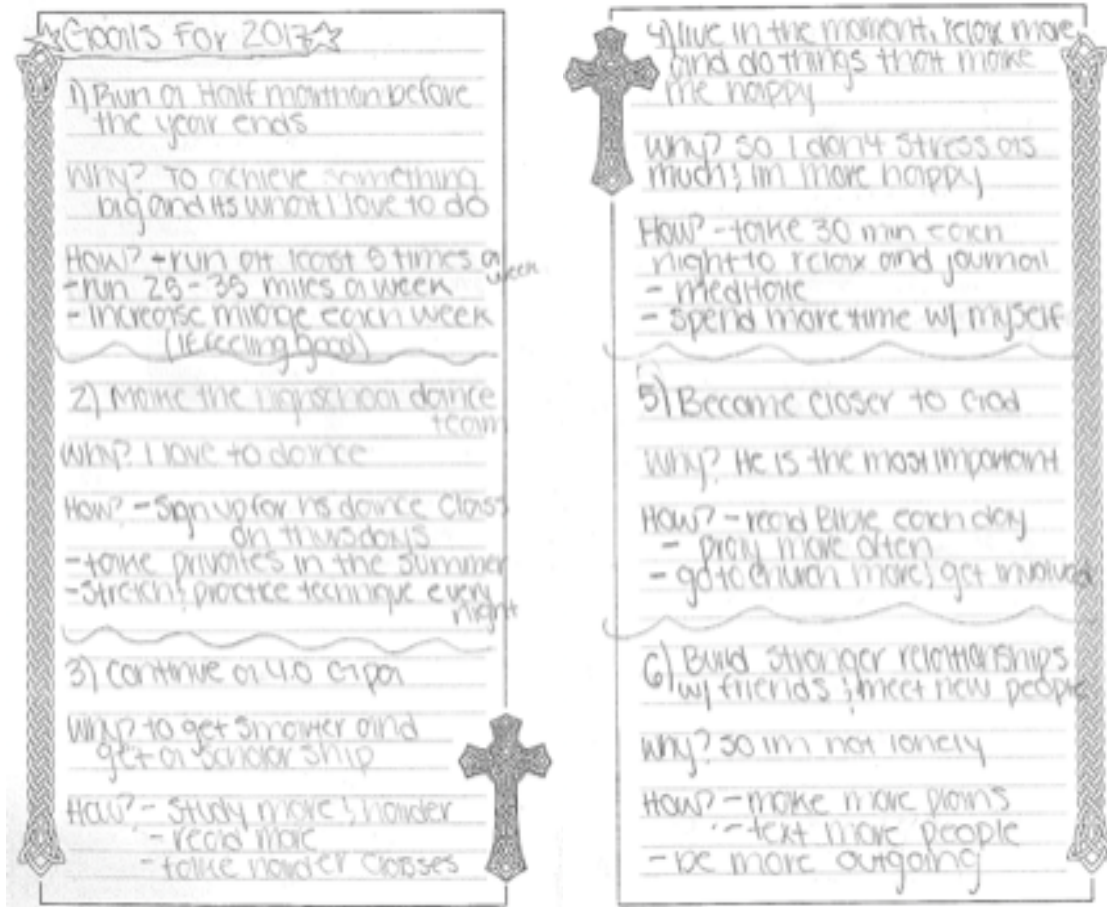 Goals For 2017
1) Run a Half marthan before
the year ends
Why? To achieve something
big and its what I love to do
How? - run at least 5 times a week
- run 25-35 miles a week
- Increase milage each week
(If feeling good)
2) Make the highschool dance
team
Why? I love to dance
How? - Sign up for hs dance class
on thursdays
- take privates in the summer
- stretch & practice technique every
night
3) Continue a 4.0 Gpa
Why? to get smarter and
get a scholar ship
How? - Study more & harder
- read more
- take harder classes
4) live in the moment, relax more
and do things that make
me happy
Why? So I don't stress as
much & im more happy
How? - take 30 min each
night to relax and journal
- meditate
- spend more time w/ myself
5) Become closer to God
Why? He is the most important
How? - read Bible each day
- pray more often
- go to church more & get involved
6) Build stronger relationships
w/ friends & meet new people
Why? so im not lonely
How? - make more plans
- text more people
- be more outgoing